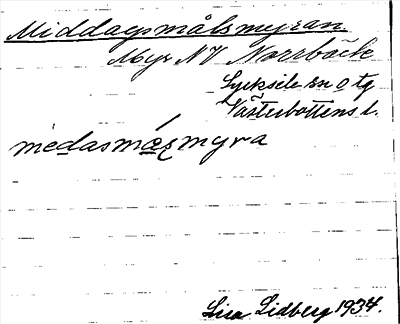 Middagsmålsmyran
Myr NV Norrbäck
Lycksele sn o tg
Västerbottens l.
medasmæɽmyra
Lisa Lidberg 1934.